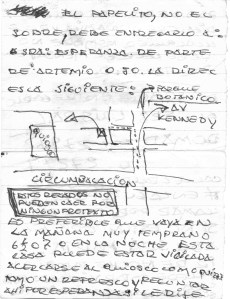 EL PAPELITO, NO EL
SOBRE, DEBE ENTREGARLO A:
SRA. ESPERANZA. DE PARTE
DE ARTEMIO O.50. LA DIREC
ES LA SIGUIENTE:
PARQUE
BOTANICO
AV
KENNEDY
CIRCUNVALACION
ESTOS RECADOS NO
PUEDEN CAER POR
NINGUN PRETEXTO
ES PREFERIBLE QUE VAYA EN
LA MAÑANA MUY TEMPRANO
6 Y O 7 O EN LA NOCHE. ESTA
CASA PUEDE ESTAR VIGILADA
ACERCARSE AL QUIOSCO COMO
TOMO UN REFRESCO Y PREGUNTAR
AHI POR ESPERANZA